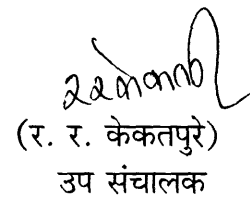 (र. र. केकतपुरे)
उप संचालक